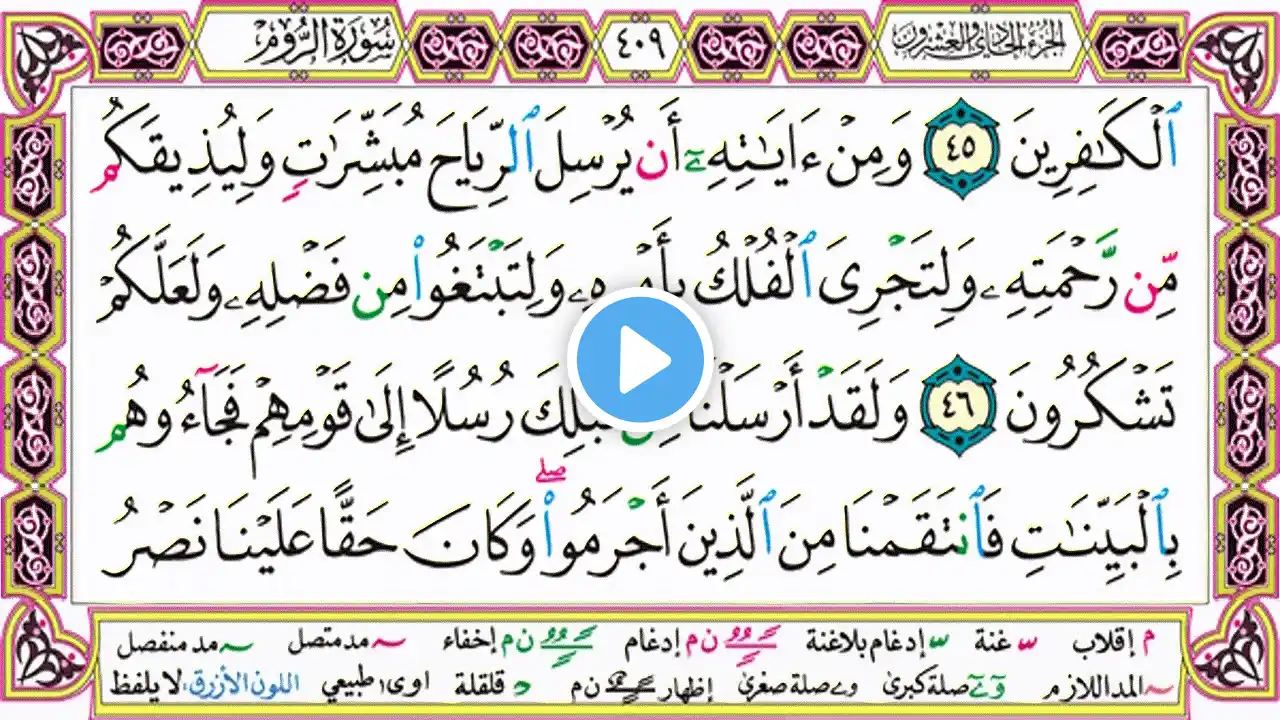 سُورَةُ الرُّومِ ٤٠٩ الجزء الحادي والعشرون
ٱلْكَـٰفِرِينَ ٤٥ وَمِنْ ءَايَـٰتِهِۦٓ أَن يُرْسِلَ ٱلرِّيَاحَ مُبَشِّرَٰتٍ وَلِيُذِيقَكُم
مِّن رَّحْمَتِهِۦ وَلِتَجْرِىَ ٱلْفُلْكُ وَلِتَبْتَغُوا۟ مِن فَضْلِهِۦ وَلَعَلَّكُمْ
تَشْكُرُونَ ٤٦ وَلَقَدْ أَرْسَلْنَا رُسُلًا إِلَىٰ قَوْمِهِمْ فَجَآءُوهُم
بِٱلْبَيِّنَـٰتِ فَٱنتَقَمْنَا مِنَ ٱلَّذِينَ أَجْرَمُوا۟ ۖ وَكَانَ حَقًّا عَلَيْنَا نَصْرُ
م إقلاب غنة إدغام بلاغنة ن م إدغام ن م إخفاء مد متصل مد منفصل
المد اللازم صلة كبرى صلة صغرى إظهار ن م قلقلة اوى طبيعي اللون الأزرق: لا يلفظ